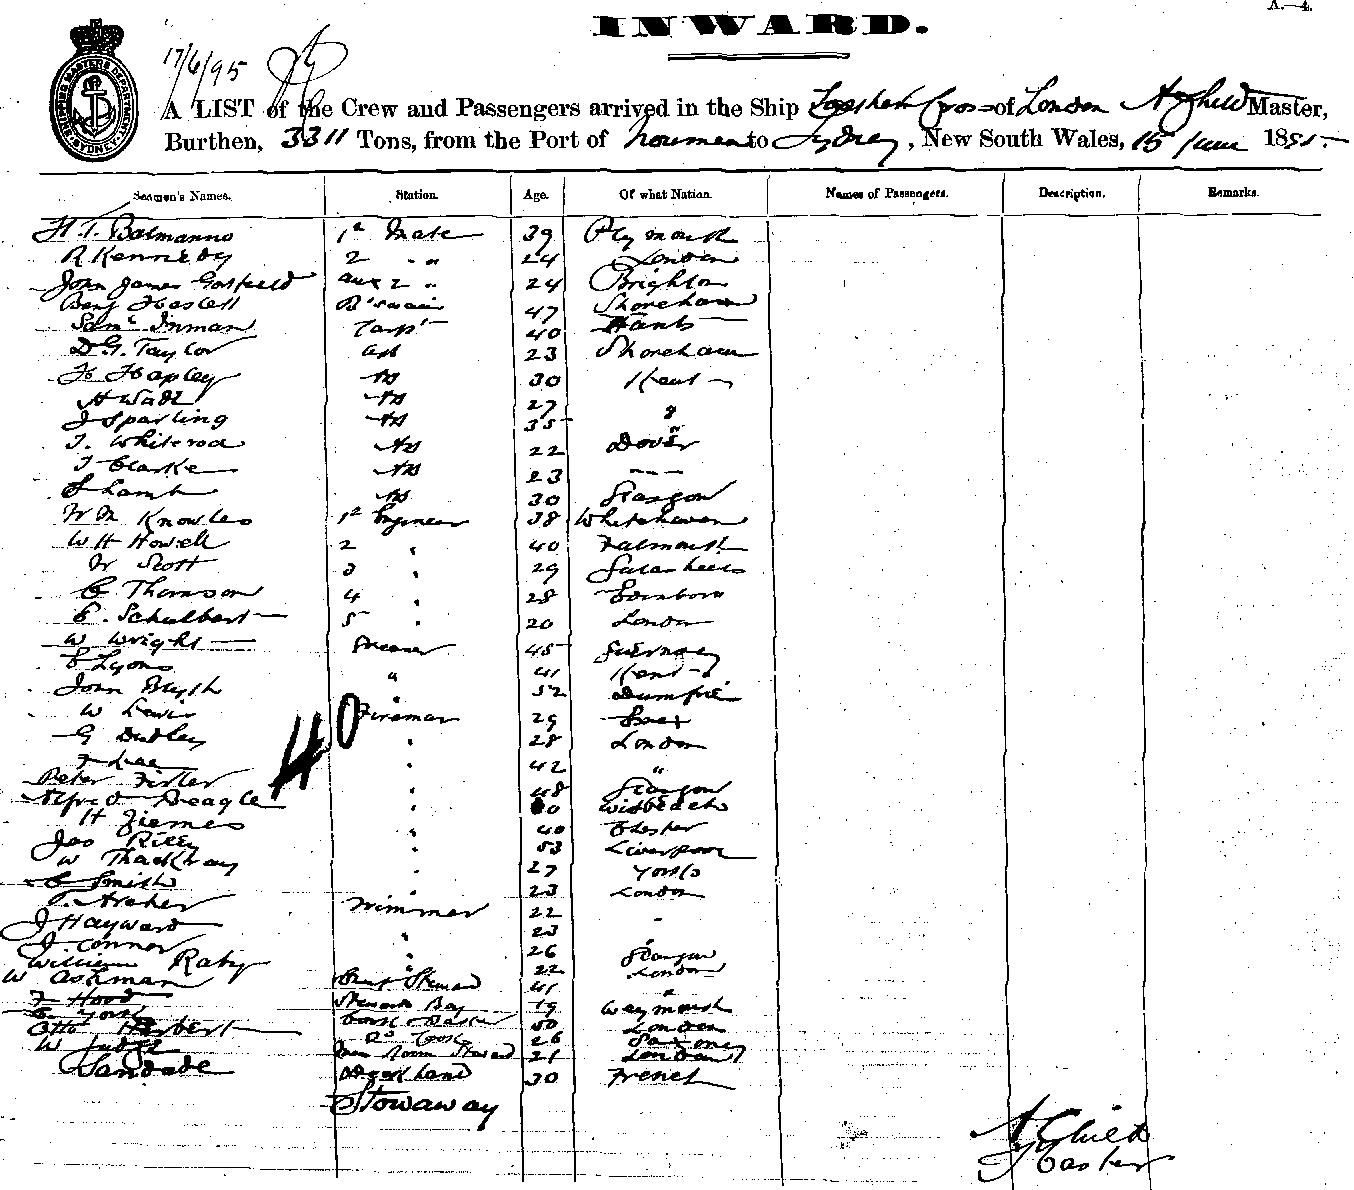 A.—4.
INWARD.
17/6/95
SHIPPING MASTERS DEPARTMENT SYDNEY
A LIST of the Crew and Passengers arrived in the Ship of London Master,
Burthen, 3311 Tons, from the Port of Noumea to Sydney, New South Wales, 15 June 1895.
Seamen's Names. Station. Age. Of what Nation. Names of Passengers. Description. Remarks.
H. T. Balmanno 1st Mate 39 Plymouth
R Kennedy 2 " " 24 London
John James aux 2 " 24 Brighton
Benj Haslett B'swain 47 Shoreham
Saml Inman Carp' 40 Hants
D. G. Taylor AB 23 Shoreham
H Hapley AB 30 Kent
H Wade AB 27 "
J Sparling AB 35 "
T. Whiterod AB 22 Dover
T Clarke AB 23 — —
S Lamb AB 30 Glasgow
W M Knowles 1st Engineer 38 Whitehaven
W H Howell 2 " 40 Falmouth
W Scott 3 " 29 Gateshead
C Thomson 4 " 28 Edinboro
E. Schulbert 5 " 20 London
W Wright Greaser 45 Guernsey
E Lyons " 41 Kent
John Blyth " 52 Dumfrie
W Lewis Fireman 29
G Dudley " 28 London
F Lee " 42 "
Peter Fidler " 48 Glasgow
Alfred Beagle " Wisbeach
H Ziemes " 40 Chester
Jas Riley " 53 Liverpool
W Thackway " 27 Yorks
C Smith " 23 London
T. Archer Trimmer 22 "
J Hayward " 23 "
J Connor " 26 Glasgow
William Raby " 22 London
W Ashman Steward 41 "
F Hood Stewards Boy 19 Weymouth
E York Cook & Baker 50 London
Otto Herbert 2d Cook 26 Saxony
W Judge Mess Room Steward 21 London
Sandade Deck hand 30 French
Stowaway
40
A Child
Master